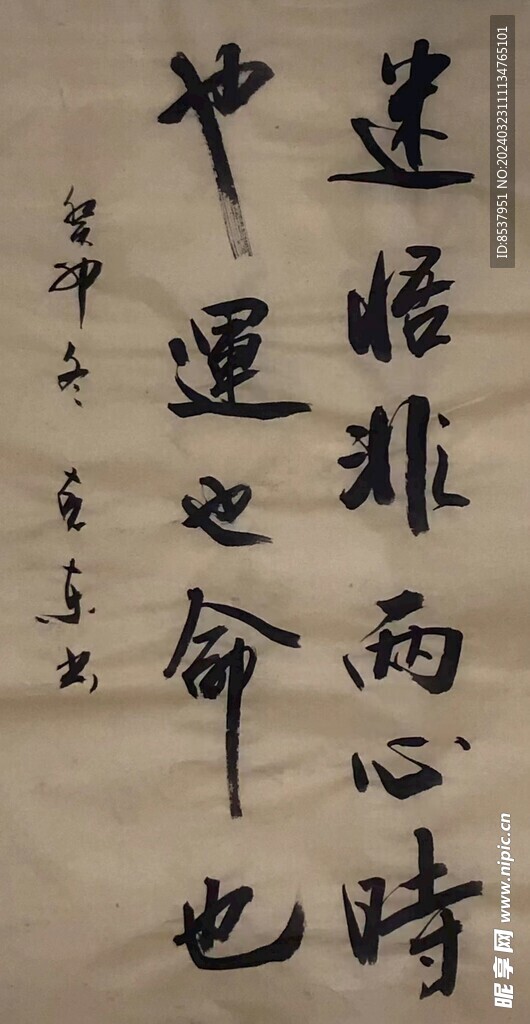 迷悟非兩心時
也運也命也
癸卯冬 克東书
昵享网 www.nipic.cn
ID:8537951 NO:20240323111134765101